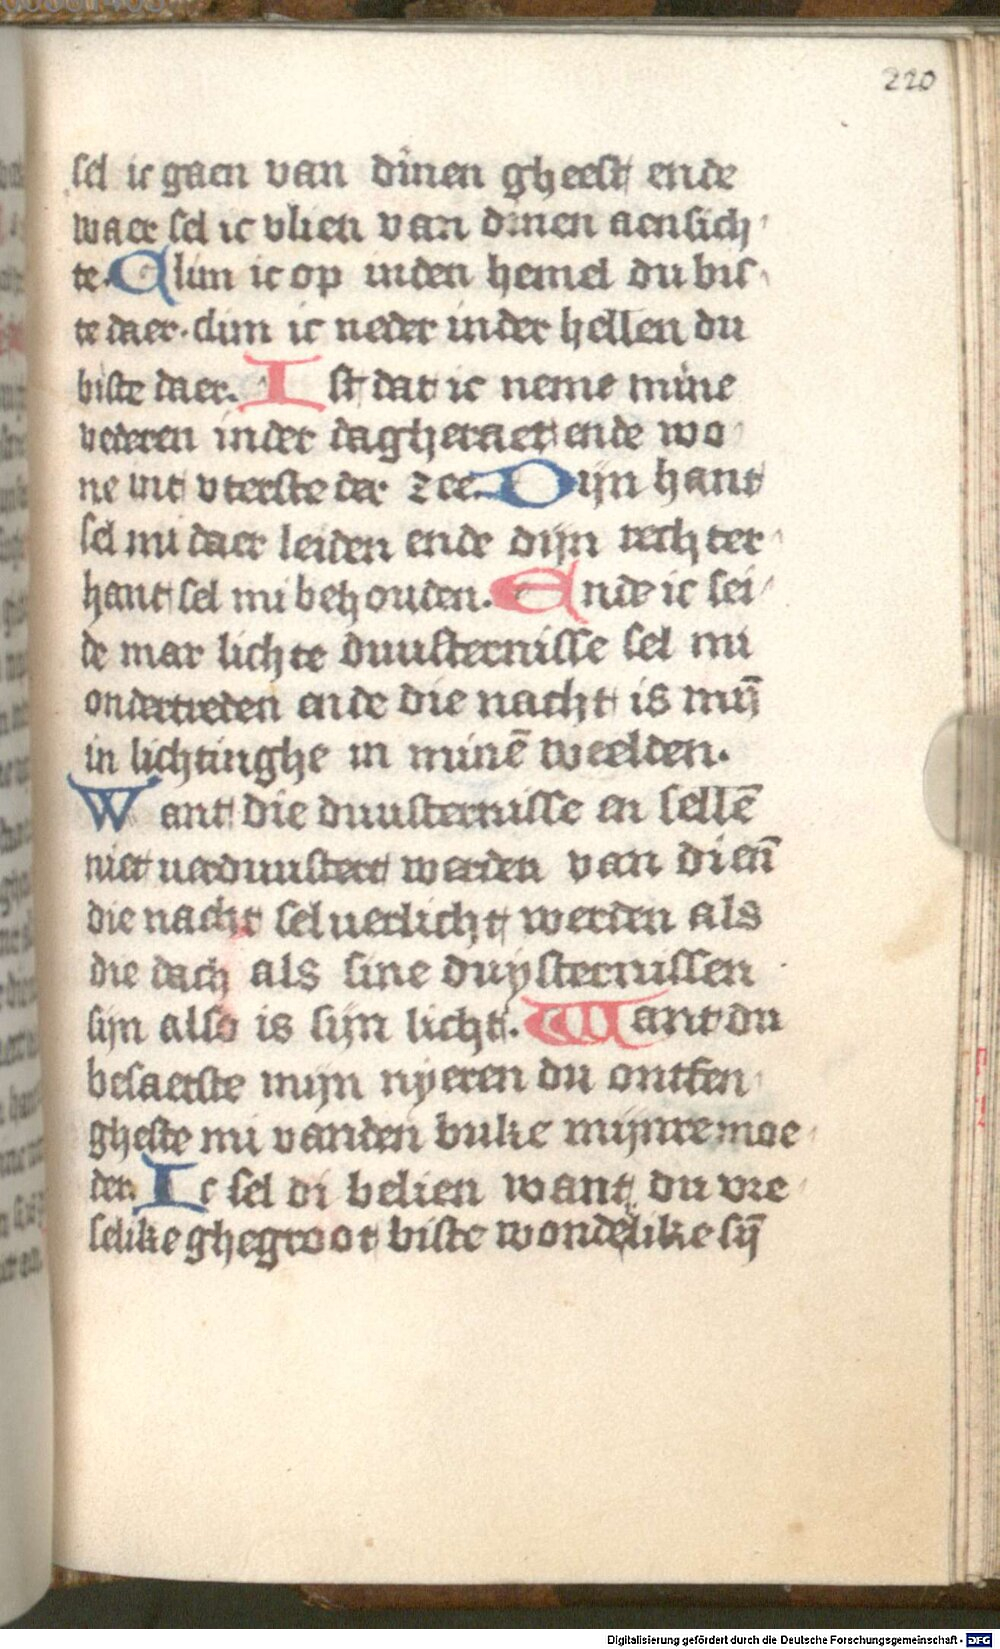 220
sel ic gaen van dinen gheest ende
waer sel ic vlien van dinen aensich
te. Clim ic op inden hemel du bis
te daer. clim ic neder inder hellen du
biste daer. Ist dat ic neme mine
vederen inder dagheraet ende wo
ne int vterste der zee. Dijn hant
sel mi daer leiden ende dijn rechter
hant sel mi behouden. Ende ic sei
de mar lichte duusternisse sel mi
ondertreden ende die nacht is mȳ
in lichtinghe in minē weelden.
Want die duusternisse en sellē
niet verduustert werden van dien̄
die nacht sel verlicht werden als
die dach als sine duysternissen
sijn also is sijn licht. Want du
besaetste mijn nyeren du ontfen
gheste mi vanden buke mijnre moe
der. Ic sel di belien want du vre
selike ghegroot biste wondelike sȳ
Digitalisierung gefördert durch die Deutsche Forschungsgemeinschaft - DFG